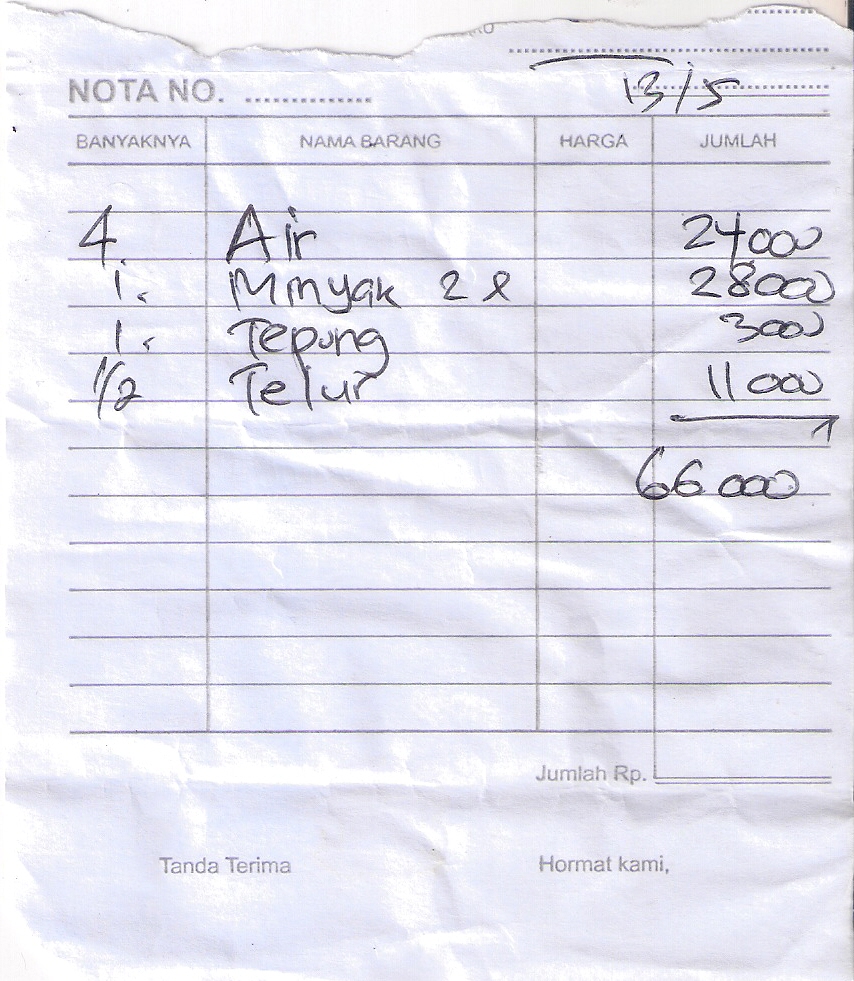 NOTA NO. ................
13/5
BANYAKNYA NAMA BARANG HARGA JUMLAH
4 Air 24000
1. Minyak 2 l 28000
1. Tepung 3000
1/2 Telur 11000
66000
Jumlah Rp.
Tanda Terima Hormat kami,